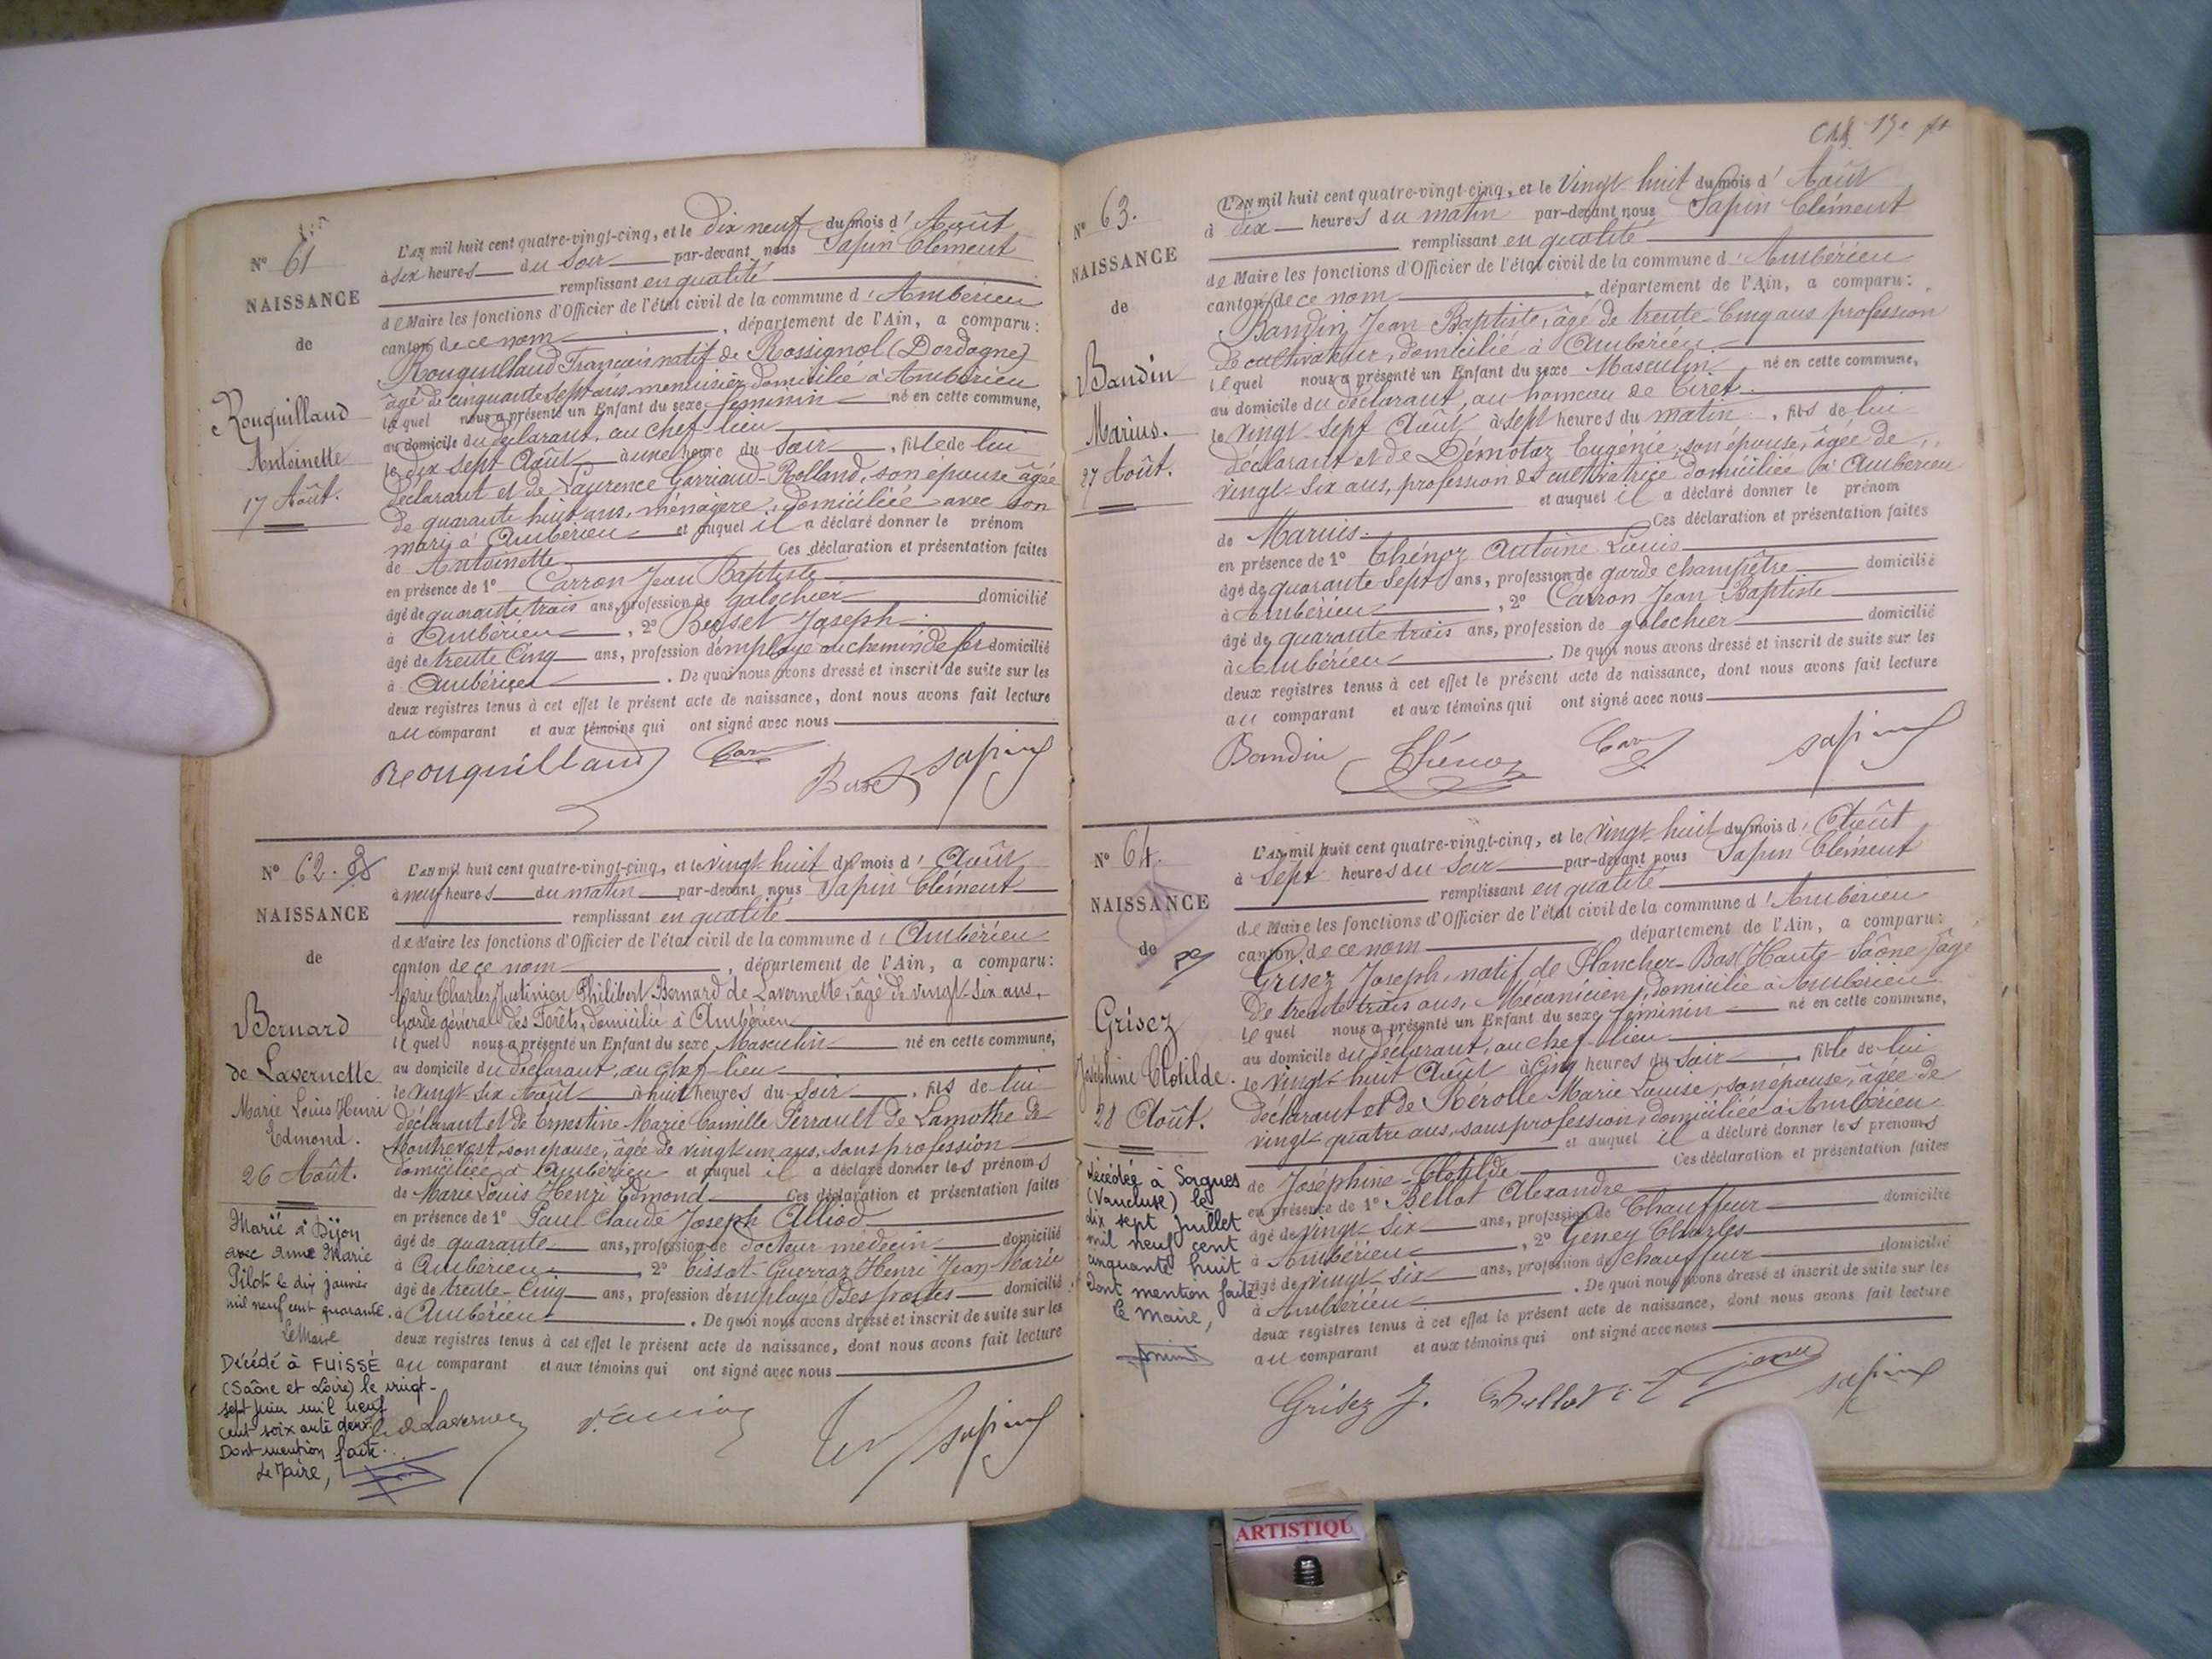 N° 61
NAISSANCE
de
Rouquilland
Antoinette
17 Août.
L'an mil huit cent quatre-vingt-cinq, et le dix neuf du mois d'Août
à six heures du Soir par-devant nous Sapin Clément
remplissant en qualité
de Maire les fonctions d'Officier de l'état civil de la commune d'Ambérieu
canton de ce nom, département de l'Ain, a comparu:
Rouquilland Français natif de Rossignol (Dordogne)
âgé de cinquante sept ans, menuisier, domicilié à Ambérieu
lequel nous a présenté un Enfant du sexe féminin né en cette commune,
au domicile du déclarant, au chef-lieu
le dix sept Août à une heure du Soir, fille de lui
déclarant et de Laurence Garriaud-Rolland, son épouse âgée
de quarante huit ans, ménagère, domiciliée avec son
mari à Ambérieu et auquel il a déclaré donner le prénom
de Antoinette Ces déclaration et présentation faites
en présence de 1° Carron Jean Baptiste
âgé de quarante trois ans, profession de galochier domicilié
à Ambérieu, 2° Busset Joseph
âgé de trente Cinq ans, profession d'employé au chemin de fer domicilié
à Ambérieu. De quoi nous avons dressé et inscrit de suite sur les
deux registres tenus à cet effet le présent acte de naissance, dont nous avons fait lecture
au comparant et aux témoins qui ont signé avec nous
Rouquilland Sapin
N° 62.
NAISSANCE
de
Bernard
de Lavernette
Marie Louis Henri
Edmond.
26 Août.
Marié à Dijon
avec Anne Marie
Pilot le dix janvier
mil neuf cent quarante.
Le Maire
Décédé à FUISSÉ
(Saône et Loire) le vingt-
sept juin mil neuf
cent soixante deux.
Dont mention faite.
Le Maire,
L'an mil huit cent quatre-vingt-cinq, et le vingt huit du mois d'Août
à neuf heures du matin par-devant nous Sapin Clément
remplissant en qualité
de Maire les fonctions d'Officier de l'état civil de la commune d'Ambérieu
canton de ce nom, département de l'Ain, a comparu:
Marie Charles Justinien Philibert Bernard de Lavernette, âgé de vingt-six ans,
Garde général des Forêts, domicilié à Ambérieu
lequel nous a présenté un Enfant du sexe Masculin né en cette commune,
au domicile du déclarant, au chef-lieu
le vingt six Août à huit heures du Soir, fils de lui
déclarant et de Ernestine Marie Camille Perrault de Lamothe de
Montrevost, son épouse, âgée de vingt un ans, sans profession
domiciliée à Ambérieu et auquel il a déclaré donner les prénoms
de Marie Louis Henri Edmond Ces déclaration et présentation faites
en présence de 1° Paul Claude Joseph Alliod
âgé de quarante ans, profession de docteur médecin domicilié
à Ambérieu, 2° Tissot-Guerraz Henri Jean-Marie
âgé de trente-Cinq ans, profession d'employé des postes domicilié
à Ambérieu. De quoi nous avons dressé et inscrit de suite sur les
deux registres tenus à cet effet le présent acte de naissance, dont nous avons fait lecture
au comparant et aux témoins qui ont signé avec nous
de Lavernette Sapin
N° 63.
NAISSANCE
de
Bandin
Marius.
27 Août.
L'an mil huit cent quatre-vingt-cinq, et le Vingt huit du mois d'Août
à dix heures du matin par-devant nous Sapin Clément
remplissant en qualité
de Maire les fonctions d'Officier de l'état civil de la commune d'Ambérieu
canton de ce nom, département de l'Ain, a comparu:
Bandin, Jean Baptiste, âgé de trente-Cinq ans profession
de cultivateur, domicilié à Ambérieu
lequel nous a présenté un Enfant du sexe Masculin né en cette commune,
au domicile du déclarant, au hameau de Tiret
le vingt-sept Août à sept heures du matin, fils de lui
déclarant et de Démotaz Eugénie, son épouse, âgée de
vingt-six ans, profession de cultivatrice domiciliée à Ambérieu
et auquel il a déclaré donner le prénom
de Marius. Ces déclaration et présentation faites
en présence de 1° Thénoz Antoine Louis
âgé de quarante sept ans, profession de garde champêtre domicilié
à Ambérieu, 2° Carron Jean-Baptiste
âgé de quarante trois ans, profession de galochier domicilié
à Ambérieu. De quoi nous avons dressé et inscrit de suite sur les
deux registres tenus à cet effet le présent acte de naissance, dont nous avons fait lecture
au comparant et aux témoins qui ont signé avec nous
Bandin Thénoz Sapin
N° 64.
NAISSANCE
de
Grisez
Joséphine Clotilde.
28 Août.
Décédée à Sorgues
(Vaucluse) le
dix sept juillet
mil neuf cent
cinquante huit
Dont mention faite.
Le Maire,
L'an mil huit cent quatre-vingt-cinq, et le vingt huit du mois d'Août
à Sept heures du Soir par-devant nous Sapin Clément
remplissant en qualité
de Maire les fonctions d'Officier de l'état civil de la commune d'Ambérieu
canton de ce nom département de l'Ain, a comparu:
Grisez Joseph, natif de Plancher-Bas (Haute-Saône) âgé
de trente trois ans, Mécanicien, domicilié à Ambérieu
lequel nous a présenté un Enfant du sexe féminin né en cette commune,
au domicile du déclarant, au chef-lieu
le vingt-huit Août à Cinq heures du Soir, fille de lui
déclarant et de Rérolle Marie Louise, son épouse, âgée de
vingt quatre ans, sans profession, domiciliée à Ambérieu
et auquel il a déclaré donner les prénoms
de Joséphine-Clotilde Ces déclaration et présentation faites
en présence de 1° Bellot Alexandre
âgé de vingt six ans, profession de Chauffeur domicilié
à Ambérieu, 2° Geney Charles
âgé de vingt-six ans, profession de chauffeur domicilié
à Ambérieu. De quoi nous avons dressé et inscrit de suite sur les
deux registres tenus à cet effet le présent acte de naissance, dont nous avons fait lecture
au comparant et aux témoins qui ont signé avec nous
Grisez J. Bellot Sapin
ARTISTIQU